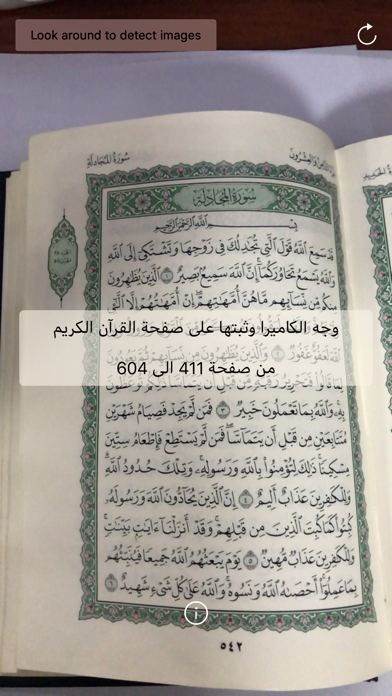 Look around to detect images
سُورَةُ المُجَادلَةِ
وَالعِشْرُونَ
سُورَةُ المُجَادلَةِ
بِسْمِ اللَّهِ الرَّحْمَٰنِ الرَّحِيمِ
قَدْ سَمِعَ اللَّهُ قَوْلَ الَّتِي تُجَٰدِلُكَ فِي زَوْجِهَا وَتَشْتَكِي إِلَى اللَّهِ
وَاللَّهُ يَسْمَعُ تَحَاوُرَكُمَا إِنَّ اللَّهَ سَمِيعٌ بَصِيرٌ ١ الَّذِينَ يُظَٰهِرُونَ
مِنكُم مِّن نِّسَائِهِم مَّا هُنَّ أُمَّهَٰتِهِمْ إِنْ أُمَّهَٰتُهُمْ إِلَّا الَّٰٓئِي
وجه الكاميرا وثبتها على صفحة القرآن الكريم
من صفحة 411 الى 604
لَعَفُوٌّ غَفُورٌ ٢ وَالَّذِينَ يُظَٰهِرُونَ مِن نِّسَائِهِمْ ثُمَّ يَعُودُونَ
لِمَا قَالُوا فَتَحْرِيرُ رَقَبَةٍ مِّن قَبْلِ أَن يَتَمَاسَّا ذَٰلِكُمْ تُوعَظُونَ
بِهِ وَاللَّهُ بِمَا تَعْمَلُونَ خَبِيرٌ ٣ فَمَن لَّمْ يَجِدْ فَصِيَامُ شَهْرَيْنِ
مُتَتَابِعَيْنِ مِن قَبْلِ أَن يَتَمَاسَّا فَمَن لَّمْ يَسْتَطِعْ فَإِطْعَامُ سِتِّينَ
مِسْكِينًا ذَٰلِكَ لِتُؤْمِنُوا بِاللَّهِ وَرَسُولِهِ وَتِلْكَ حُدُودُ اللَّهِ
وَلِلْكَٰفِرِينَ عَذَابٌ أَلِيمٌ ٤ إِنَّ الَّذِينَ يُحَادُّونَ اللَّهَ وَرَسُولَهُ
كُبِتُوا كَمَا كُبِتَ الَّذِينَ مِن قَبْلِهِمْ وَقَدْ أَنزَلْنَا ءَايَٰتٍ بَيِّنَٰتٍ
وَلِلْكَٰفِرِينَ عَذَابٌ مُّهِينٌ ٥ يَوْمَ يَبْعَثُهُمُ اللَّهُ جَمِيعًا فَيُنَبِّئُهُم
بِمَا عَمِلُوا أَحْصَىٰهُ اللَّهُ وَنَسُوهُ وَاللَّهُ عَلَىٰ كُلِّ شَيْءٍ شَهِيدٌ ٦
٥٤٢